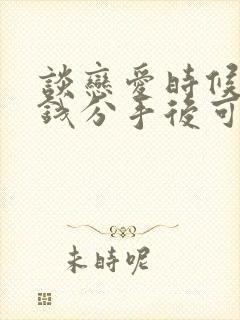 談戀愛時候
錢分手後可
未時呢